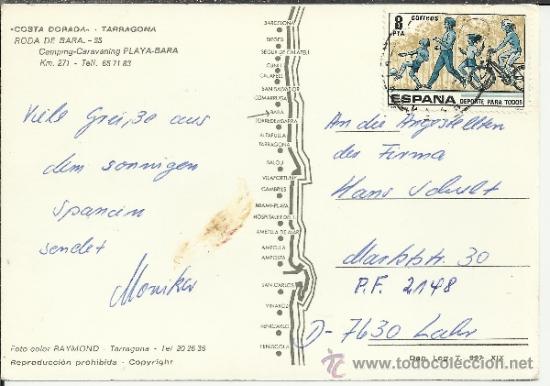 "COSTA DORADA" - TARRAGONA
RODA DE BARA. - 35
Camping-Caravaning PLAYA-BARA
Km. 271 - Telf. 65 71 83
Viele Grüße aus
dem sonnigen
Spanien
sendet
Monika
Foto color RAYMOND - Tarragona - Tel 20 26 35
Reproducción prohibida - Copyright
BARCELONA
SEGUR DE CALAFELL
CUNIT
CALAFELL
SAN SALVADOR
COMARRUGA
BARA
TORREDEMBARRA
ALTAFULLA
TARRAGONA
SALOU
VILAFORTUNY
CAMBRILS
MIAMI-PLAYA
HOSPITALET DE
AMETLLA DE MAR
AMPOLLA
AMPOSTA
SAN CARLOS
VINAROZ
BENICARLO
PEÑISCOLA
8
PTA
correos
ESPAÑA
DEPORTE PARA TODOS
An die Angestellten
der Firma
Hans Schuldt
Marktstr. 30
P.F. 2148
D-7630 Lahr
Dep. Leg. T. 997 XIX
todocoleccion.net